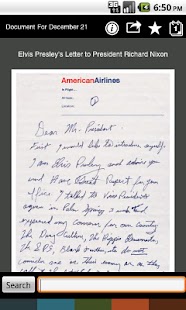 6:50 PM
Document For December 21
Elvis Presley's Letter to President Richard Nixon
AmericanAirlines
In Flight...
Altitude;
Location;
Dear Mr. President.
First I would like to introduce myself.
I am Elvis Presley and admire you
and Have Great Respect for your
office. I talked to Vice President
Agnew in Palm Springs 3 weeks ago
expressed my concern for our country.
The Drug Culture, The Hippie Elements,
The SDS, Black Panthers, etc do not
consider me as their enemy or as they
Search